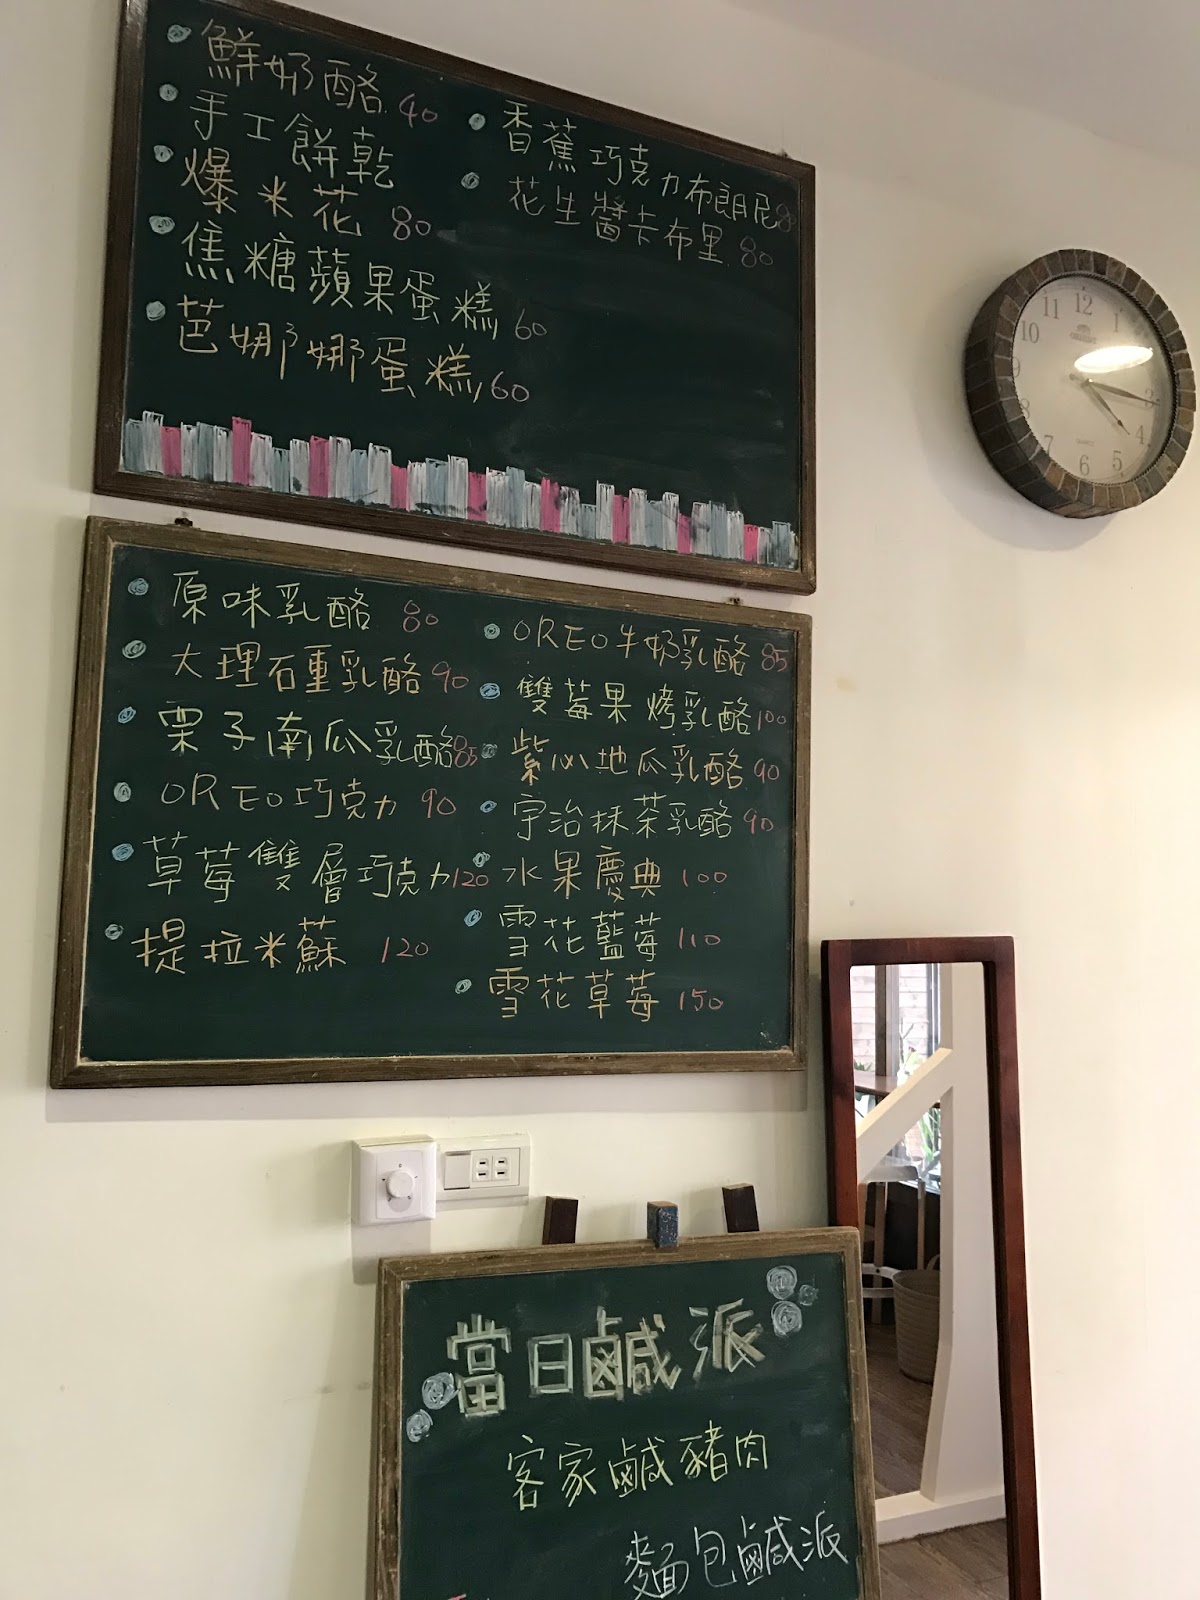 鮮奶酪 40
手工餅乾
爆米花 80
焦糖蘋果蛋糕 60
芭娜娜蛋糕 60
香蕉巧克力布朗尼 80
花生醬卡布里 80
原味乳酪 80
大理石重乳酪 90
栗子南瓜乳酪 85
OREO巧克力 90
草莓雙層巧克力 120
提拉米蘇 120
OREO牛奶乳酪 85
雙莓果烤乳酪 100
紫心地瓜乳酪 90
宇治抹茶乳酪 90
水果慶典 100
雪花藍莓 110
雪花草莓 150
當日鹹派
客家鹹豬肉
麵包鹹派
12
1
3
4
5
6
7
8
9
10
11
QUARTZ